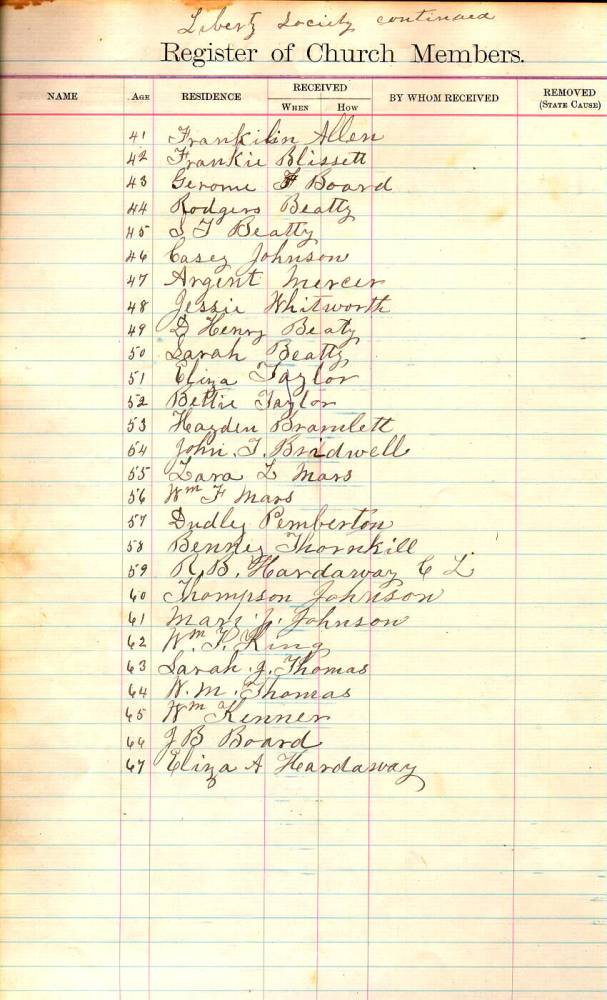 Liberty Society continued
Register of Church Members.
NAME AGE RESIDENCE RECEIVED WHEN HOW BY WHOM RECEIVED REMOVED (STATE CAUSE)
41 Franklin Allen
42 Frankie Blissett
43 Gerome F Board
44 Rodgers Beatty
45 S T Beatty
46 Casey Johnson
47 Argent Mercer
48 Jessie Whitworth
49 D Henry Beaty
50 Sarah Beatty
51 Eliza Taylor
52 Bettie Taylor
53 Hayden Bramlett
54 John. T. Bridwell
55 Zara L Mars
56 Wm F Mars
57 Dudley Pemberton
58 Benney Thornkill
59 R. B. Hardaway C L
60 Thompson Johnson
61 Mare J. Johnson
62 Wm. P. King
63 Sarah. J. Thomas
64 W. M. Thomas
65 Wm Kenner
66 J B Board
67 Eliza A Hardaway